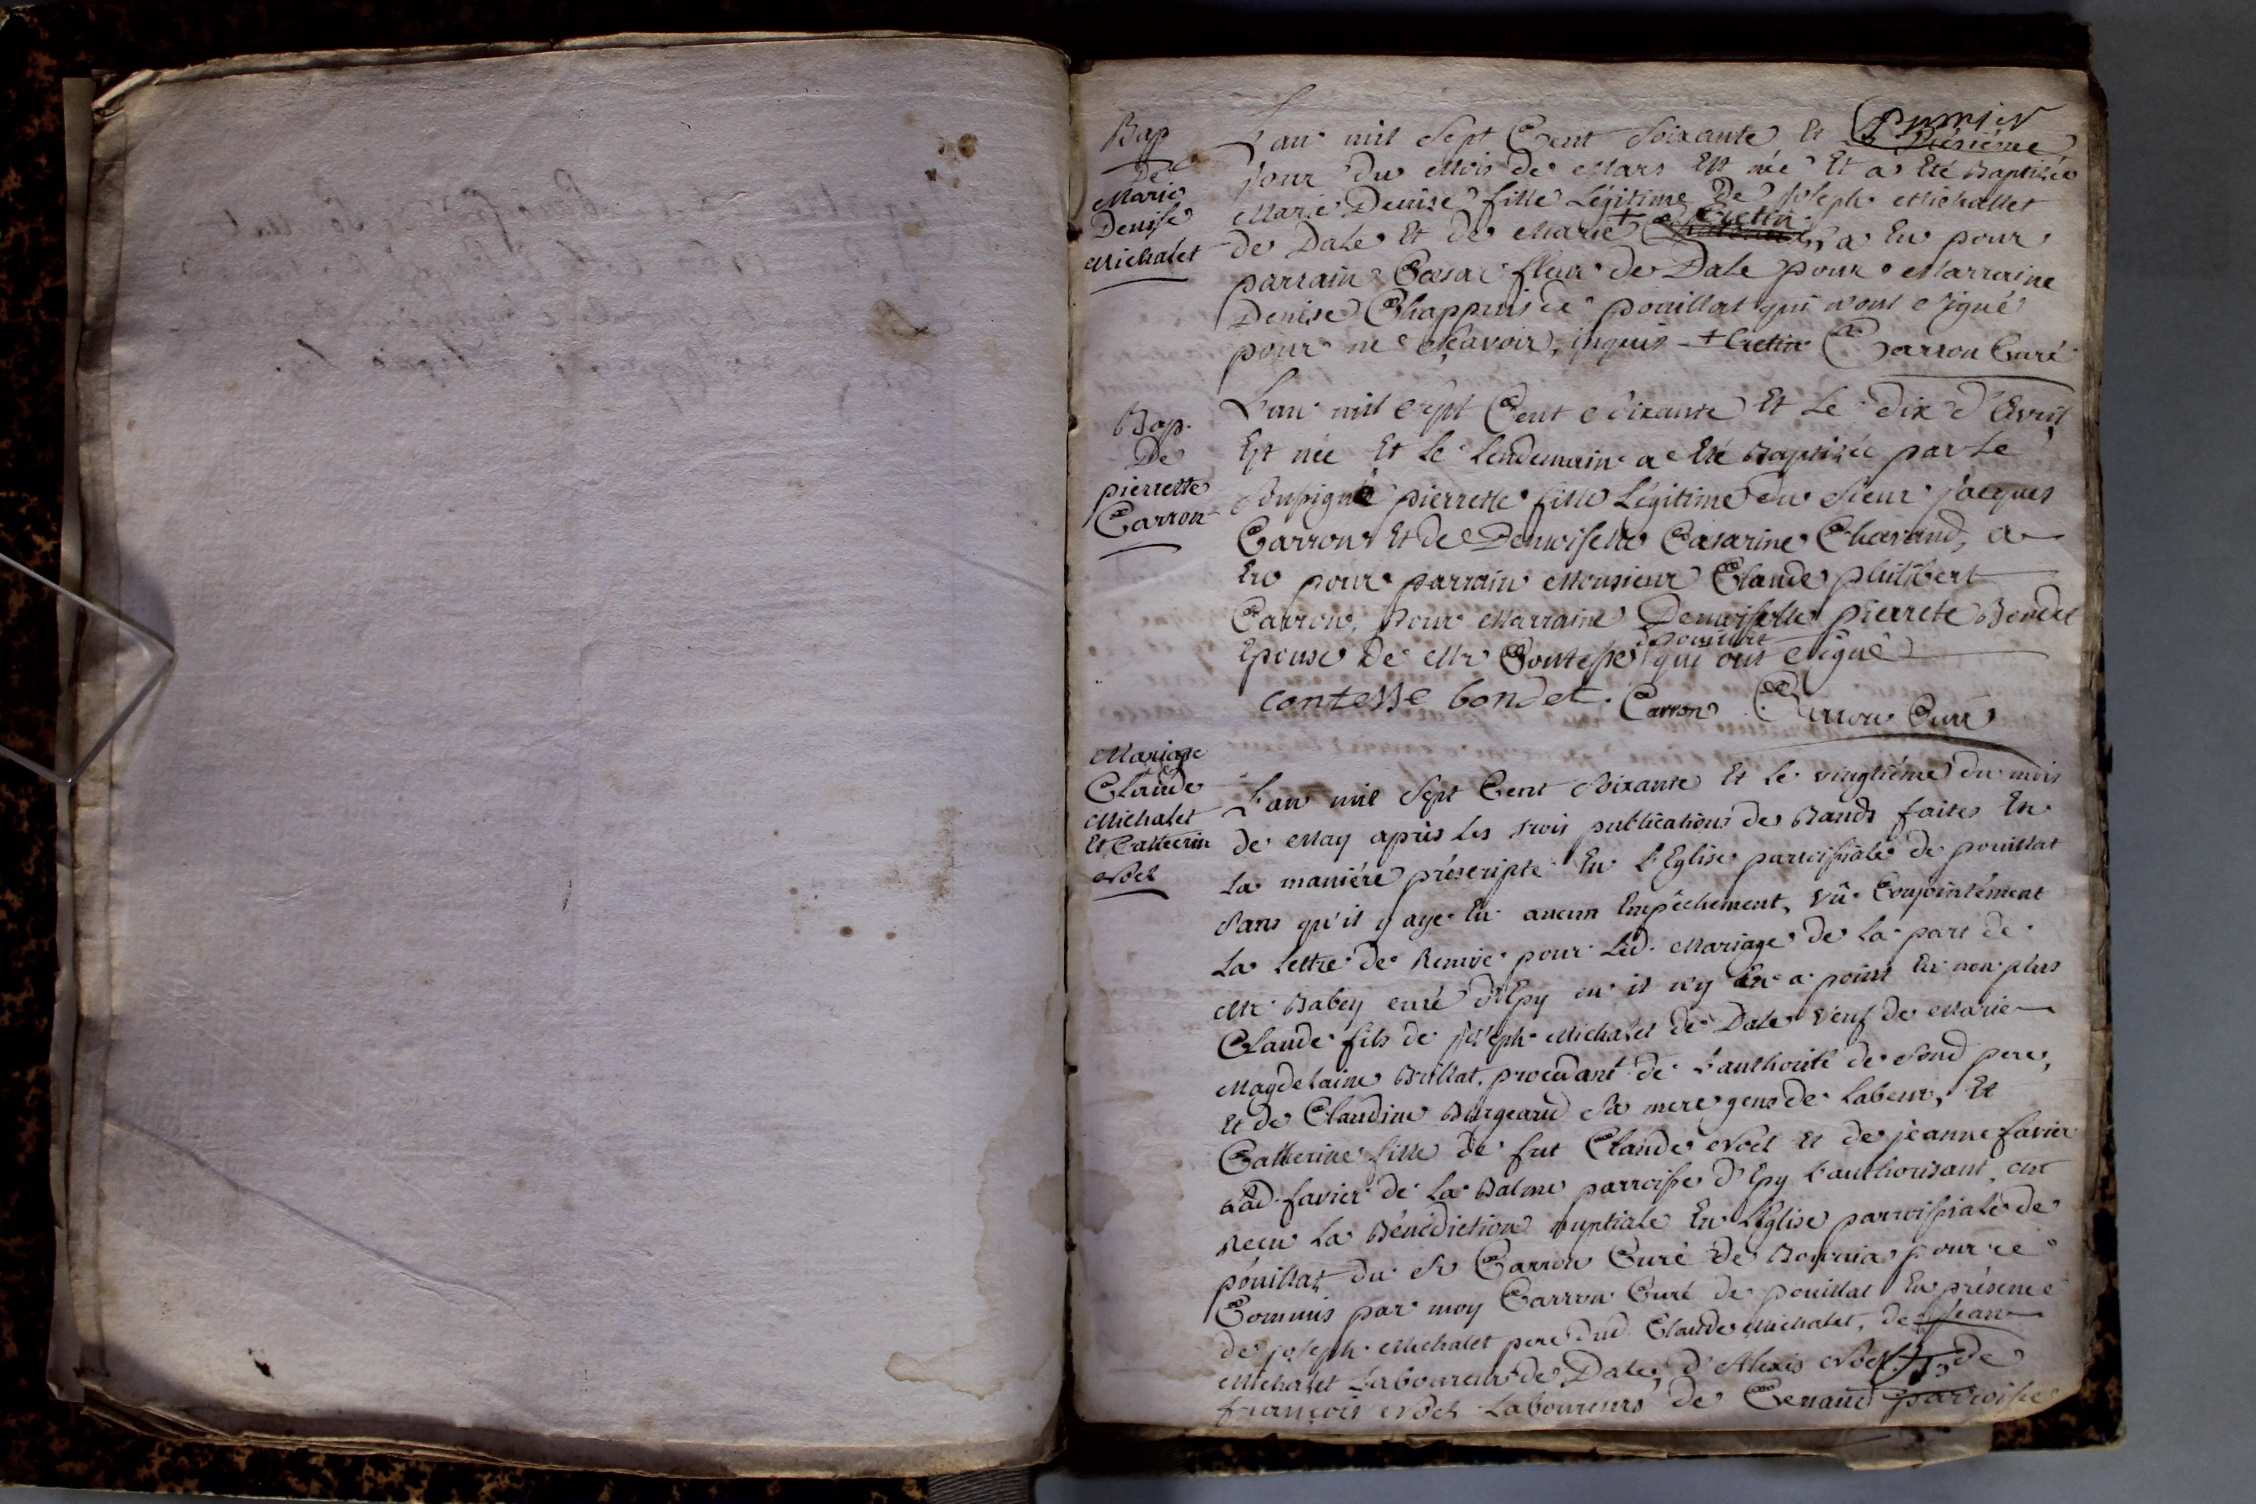 premier
Bap
De
Marie
Denise
Michalet
L'an mil sept Cent soixante Et le
jour du Mois de Mars Est née Et a Eté Baptisée
Marie Denise fille Légitime De Joseph Michallet
Cretin
de Dale Et de Marie + a Eu pour
parrain Cæsar fleur de Dale pour Marraine
Denise Chappuis de pouillat qui n'ont signé
pour ne sçavoir, inquis + Cretin Carron Curé
Bap.
De
pierrette
Carron
L'an mil sept Cent soixante Et Le dix d'Avril
Est née Et le lendemain a Eté Baptisée par Le
soussigné pierrette fille Légitime du sieur jacques
Carron Et de Demoiselle Cæsarine Chavand, a
Eu pour parrain Monsieur Claude philibert
Carron, pour Marraine Demoiselle pierrete Bondet
de pouillat
Epouse De Mr Contesse qui ont signé
contesse bondet. Carron Carron Curé
Mariage
de
Claude
Michalet
Et Catherin
Noël
L'an mil sept Cent soixante Et le vingtiéme du mois
de May après les trois publications de Bands faites En
La maniére préscripte En L'Eglise parroissiale de pouillat
sans qu'il y aye Eu aucun Empêchement, vû Conjointément
La Lettre de Remise pour Led. Mariage de la part de
Mr Babey curé d'Epy ou il n'y En a point Eu non plus
Claude fils de Joseph Michalet de Dale Veuf de Marie
Magdelaine Brillat, procedant de L'authorité de sond pere,
Et de Claudine Burgeaud sa mere gens de Labeur, Et
Catherine fille de fut Claude Noël Et de jeanne favier
Lad. favier de La Balme parroisse d'Epy L'authorisant, ont
Reçu La Bénédiction nuptiale En L'Eglise parroissiale de
pouillat du Sr Carron Curé de pour ce
Commis par moy Carron Curé de pouillat En présence
de joseph Michalet pere dud. Claude Michalet, de jean
Michalet Laboureur de Dale, d'Alexis Noël + de
françois Noël Laboureurs de parroisse